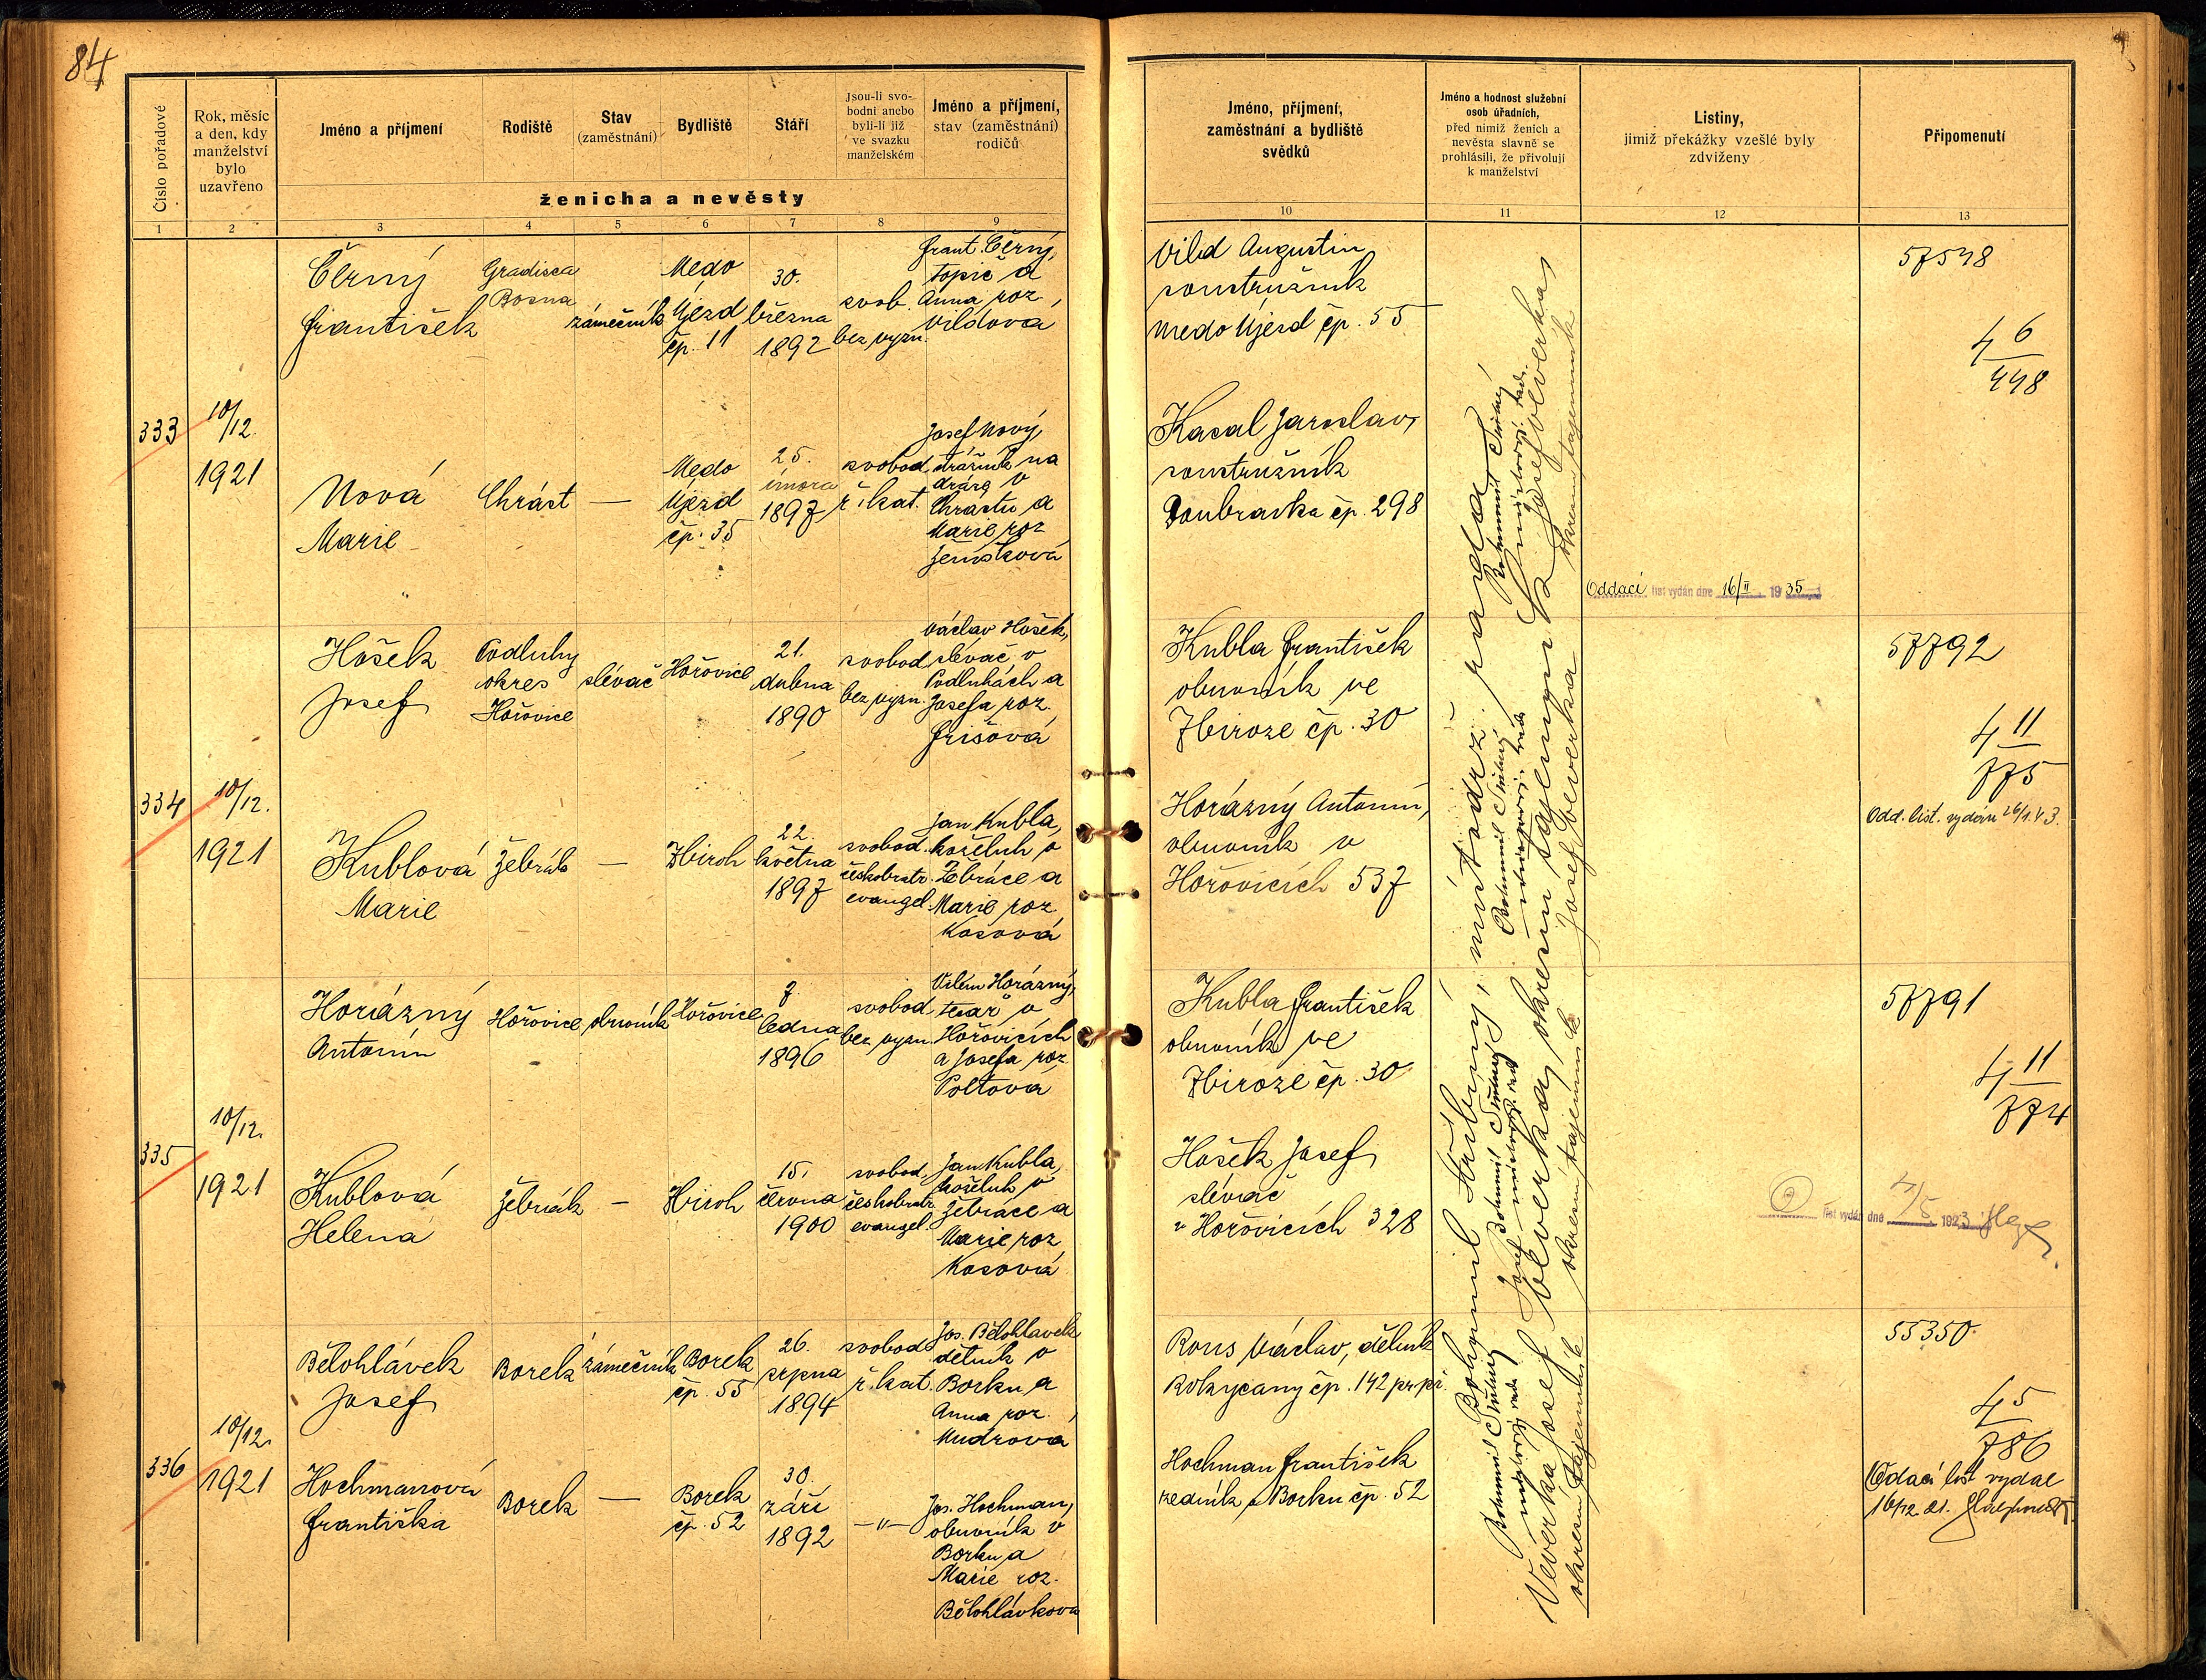 84
Číslo pořadové
Rok, měsíc
a den, kdy
manželství
bylo
uzavřeno
Jméno a příjmení
Rodiště
Stav
(zaměstnání)
Bydliště
Stáří
Jsou-li svo-
bodni anebo
byli-li již
ve svazku
manželském
Jméno a příjmení,
stav (zaměstnání)
rodičů
ženicha a nevěsty
Jméno, příjmení,
zaměstnání a bydliště
svědků
Jméno a hodnost služební
osob úřadních,
před nimiž ženich a
nevěsta slavně se
prohlásili, že přivolují
k manželství
Listiny,
jimiž překážky vzešlé byly
zdviženy
Připomenutí
1 2 3 4 5 6 7 8 9 10 11 12 13
333
10/12.
1921
Černý
František
Gradisca
Bosna
zámečník
Medo
Újezd
čp. 11
30.
března
1892
svob.
bez vyzn.
Frant. Černý,
topič a
Anna roz.
Vildová
Nová
Marie
Chrást
—
Medo
Újezd
čp. 35
25.
února
1897
svobod.
ř. kat.
Josef Nový,
drážník na
dráze v
Chrastu a
Marie roz.
Vild Augustin,
soustružník
Medo Újezd čp. 55
Kasal Jaroslav,
soustružník
Doubravka čp. 298
Oddací list vydán dne 16/II 1935
57548
4 6
448
334
10/12.
1921
Hošek
Josef
Podluhy
okres
Hořovice
slévač
Hořovice
21.
dubna
1890
svobod
bez vyzn.
Václav Hošek,
slévač v
Podluhách a
Josefa roz.
Frišová
Kublová
Marie
Žebrák
—
Zbiroh
22.
května
1897
svobod.
českobratr.
evangel.
Jan Kubla,
koželuh v
Žebráce a
Marie roz.
Kosová
Kubla František
obuvník ve
Zbiroze čp. 30
Horázný Antonín,
obuvník v
Hořovicích 537
57792
4 11
775
Odd. list. vydán 26/1.43.
335
10/12.
1921
Horázný
Antonín
Hořovice
obuvník
Hořovice
7.
ledna
1896
svobod
bez vyzn.
Vilém Horázný,
tesař v
Hořovicích
a Josefa roz.
Poltova
Kublová
Helena
Žebrák
—
Zbiroh
15.
června
1900
svobod.
českobratr.
evangel.
Jan Kubla,
koželuh v
Žebráce a
Marie roz.
Kosová
Kubla František
obuvník ve
Zbiroze čp. 30
Hošek Josef,
slévač
v Hořovicích 328
57791
4 11
774
list vydán dne 4/5 1923
336
10/12.
1921
Bělohlávek
Josef
Borek
zámečník
Borek
čp. 55
26.
srpna
1894
svobod
ř. kat.
Jos. Bělohlavek
dělník v
Borku a
Anna roz.
Mudrová
Hochmanová
Františka
Borek
—
Borek
čp. 52
30.
září
1892
—"—
Jos. Hochman,
obuvník v
Borku a
Marie roz.
Bělohlávkova
Rous Václav, dělník
Rokycany čp. 142 pr. př.
Hochman František
zedník v Borku čp. 52
55350
4 5
786
Oddací list vydal
16/12 21.
Veverka Josef
okresní tajemník
Josef Veverka
okresní tajemník
Josef Veverka
okresní tajemník